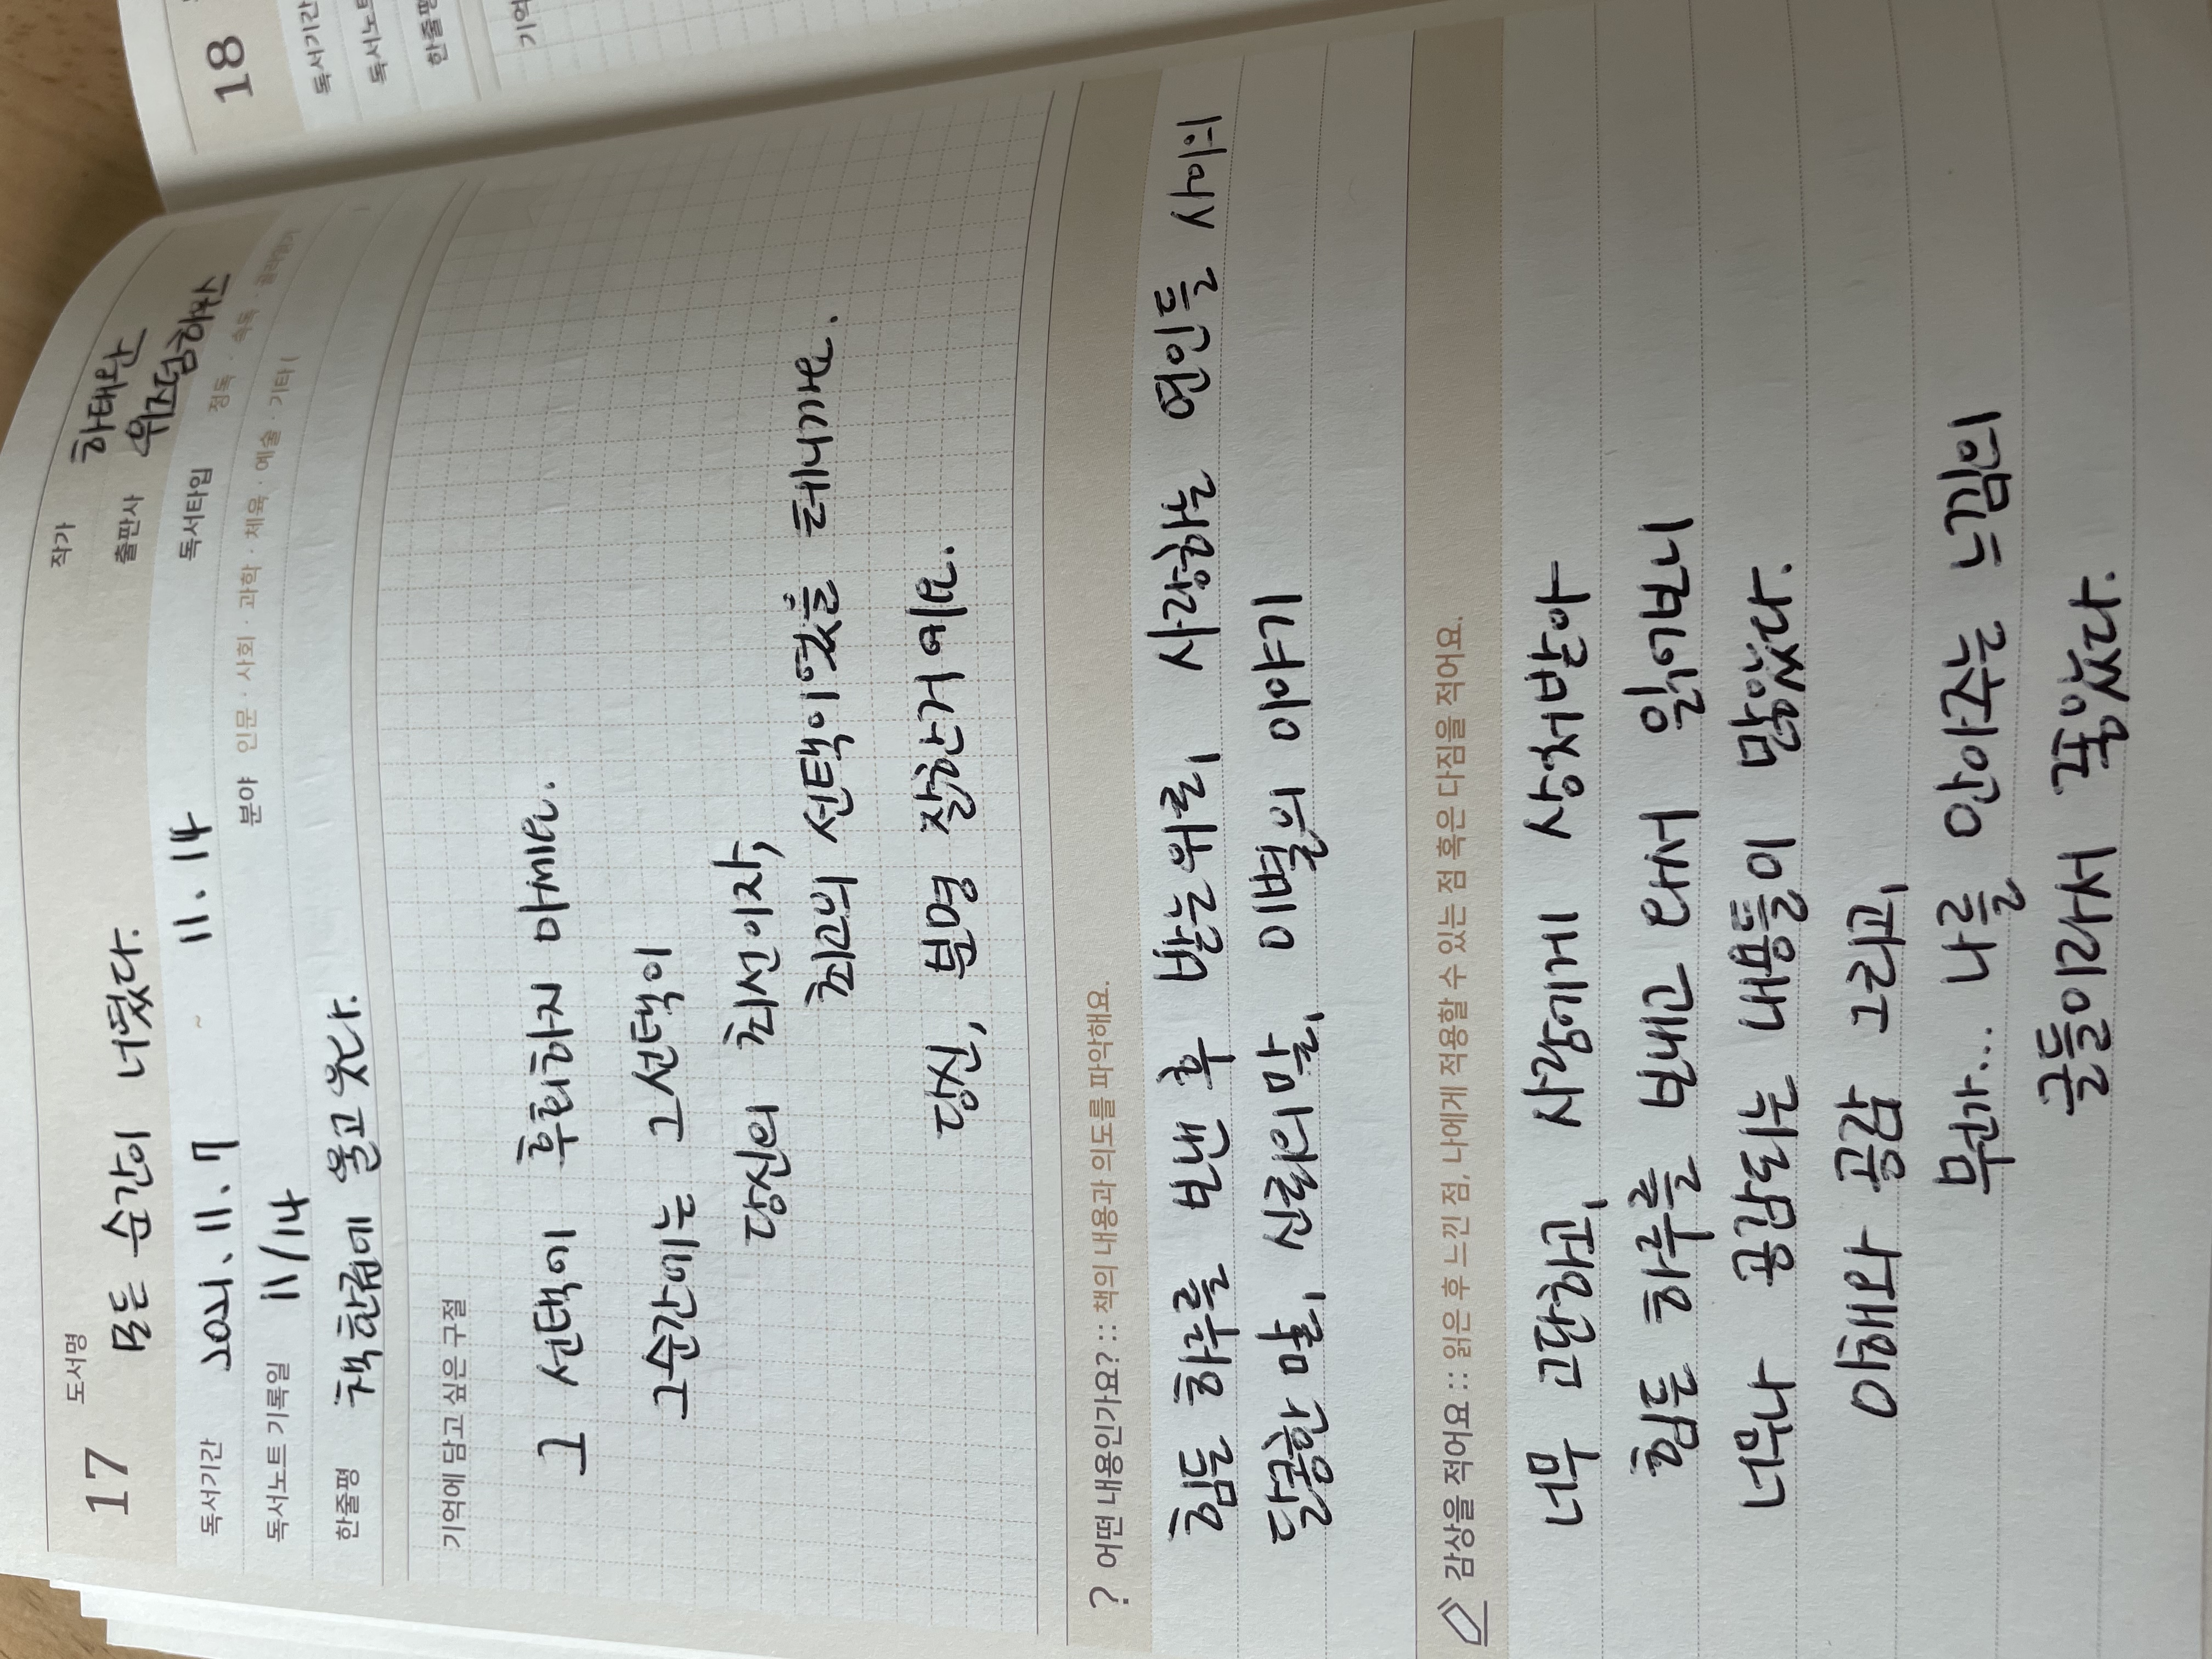 17
도서명
모든 순간이 너였다.
작가 하태완
출판사 위즈덤하우스
독서기간 2021. 11. 7 ~ 11. 14
독서타입 정독 · 속독 · 골라읽기
독서노트 기록일 11/14
분야 인문 · 사회 · 과학 · 체육 · 예술 · 기타 (
)
한줄평 책 한권에 울고 웃다.
기억에 담고 싶은 구절
그 선택에 후회하지 마세요.
그순간에는 그선택이
당신의 최선이자,
최고의 선택이였을 테니까요.
당신, 분명 잘한거예요.
? 어떤 내용인가요? :: 책의 내용과 의도를 파악해요.
힘든 하루를 보낸 후 받는위로, 사랑하는 연인들 사이의
달콤한 말, 신뢰의말, 이별의 이야기
감상을 적어요 :: 읽은 후 느낀 점, 나에게 적용할 수 있는 점 혹은 다짐을 적어요.
너무 고단하고, 사람에게 상처받아
힘든 하루를 보내고 와서 읽어보니
너무나 공감되는 내용들이 많았다.
이해와 공감 그리고,
뭔가... 나를 안아주는 느낌의
글들이라서 좋았다.
18
독서기간
독서노트
한줄평
기억